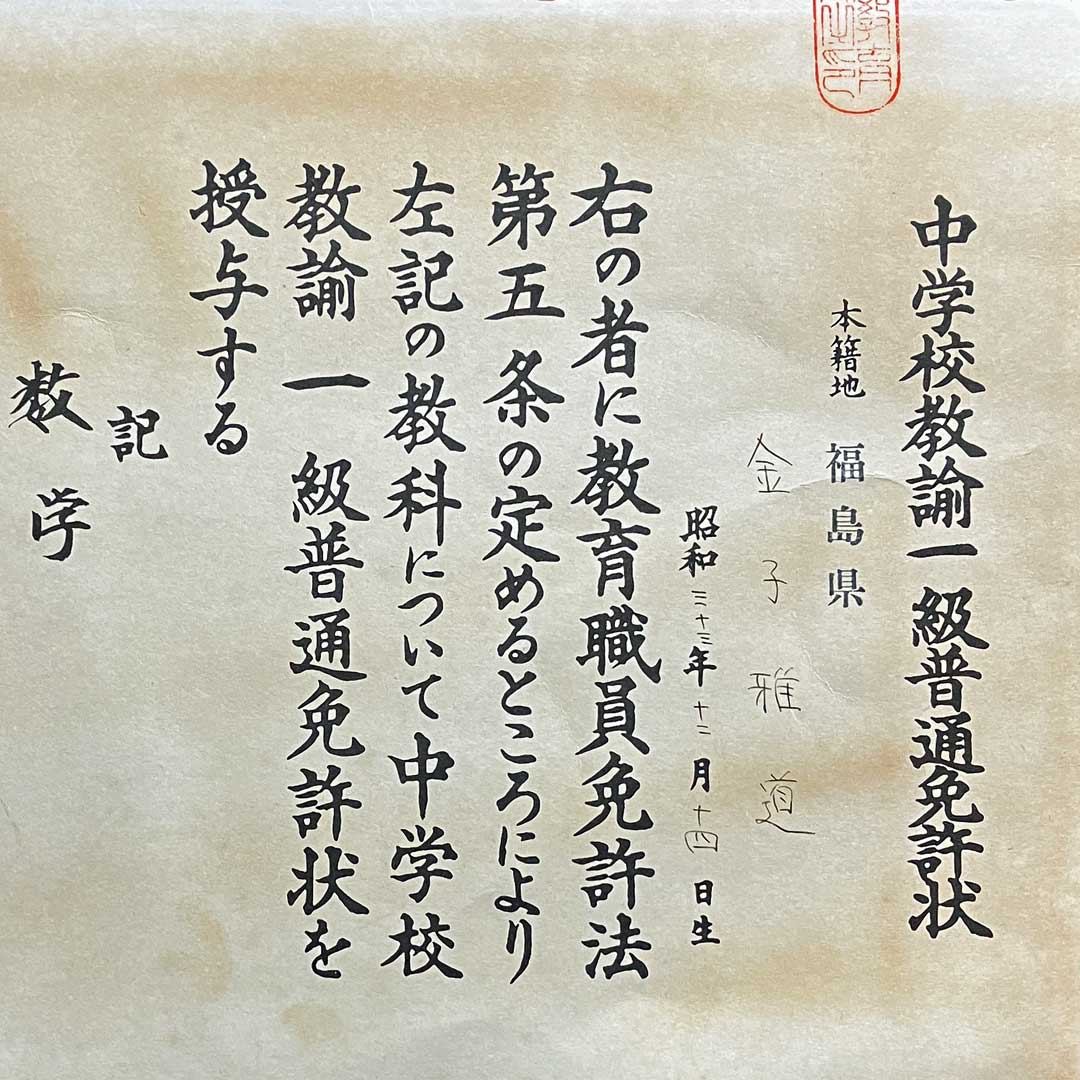 中学校教諭一級普通免許状
本籍地 福島県
金子雅道
昭和三十三年十二月十四日生
右の者に教育職員免許法
第五条の定めるところにより
左記の教科について中学校
教諭一級普通免許状を
授与する
記
数学